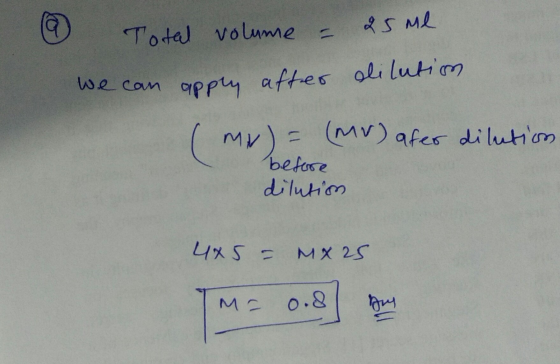 (9) Total volume = 25 Ml
we can apply after dilution
(MV) before dilution = (MV) afer dilution
4×5 = M×25
M = 0.8 Ans